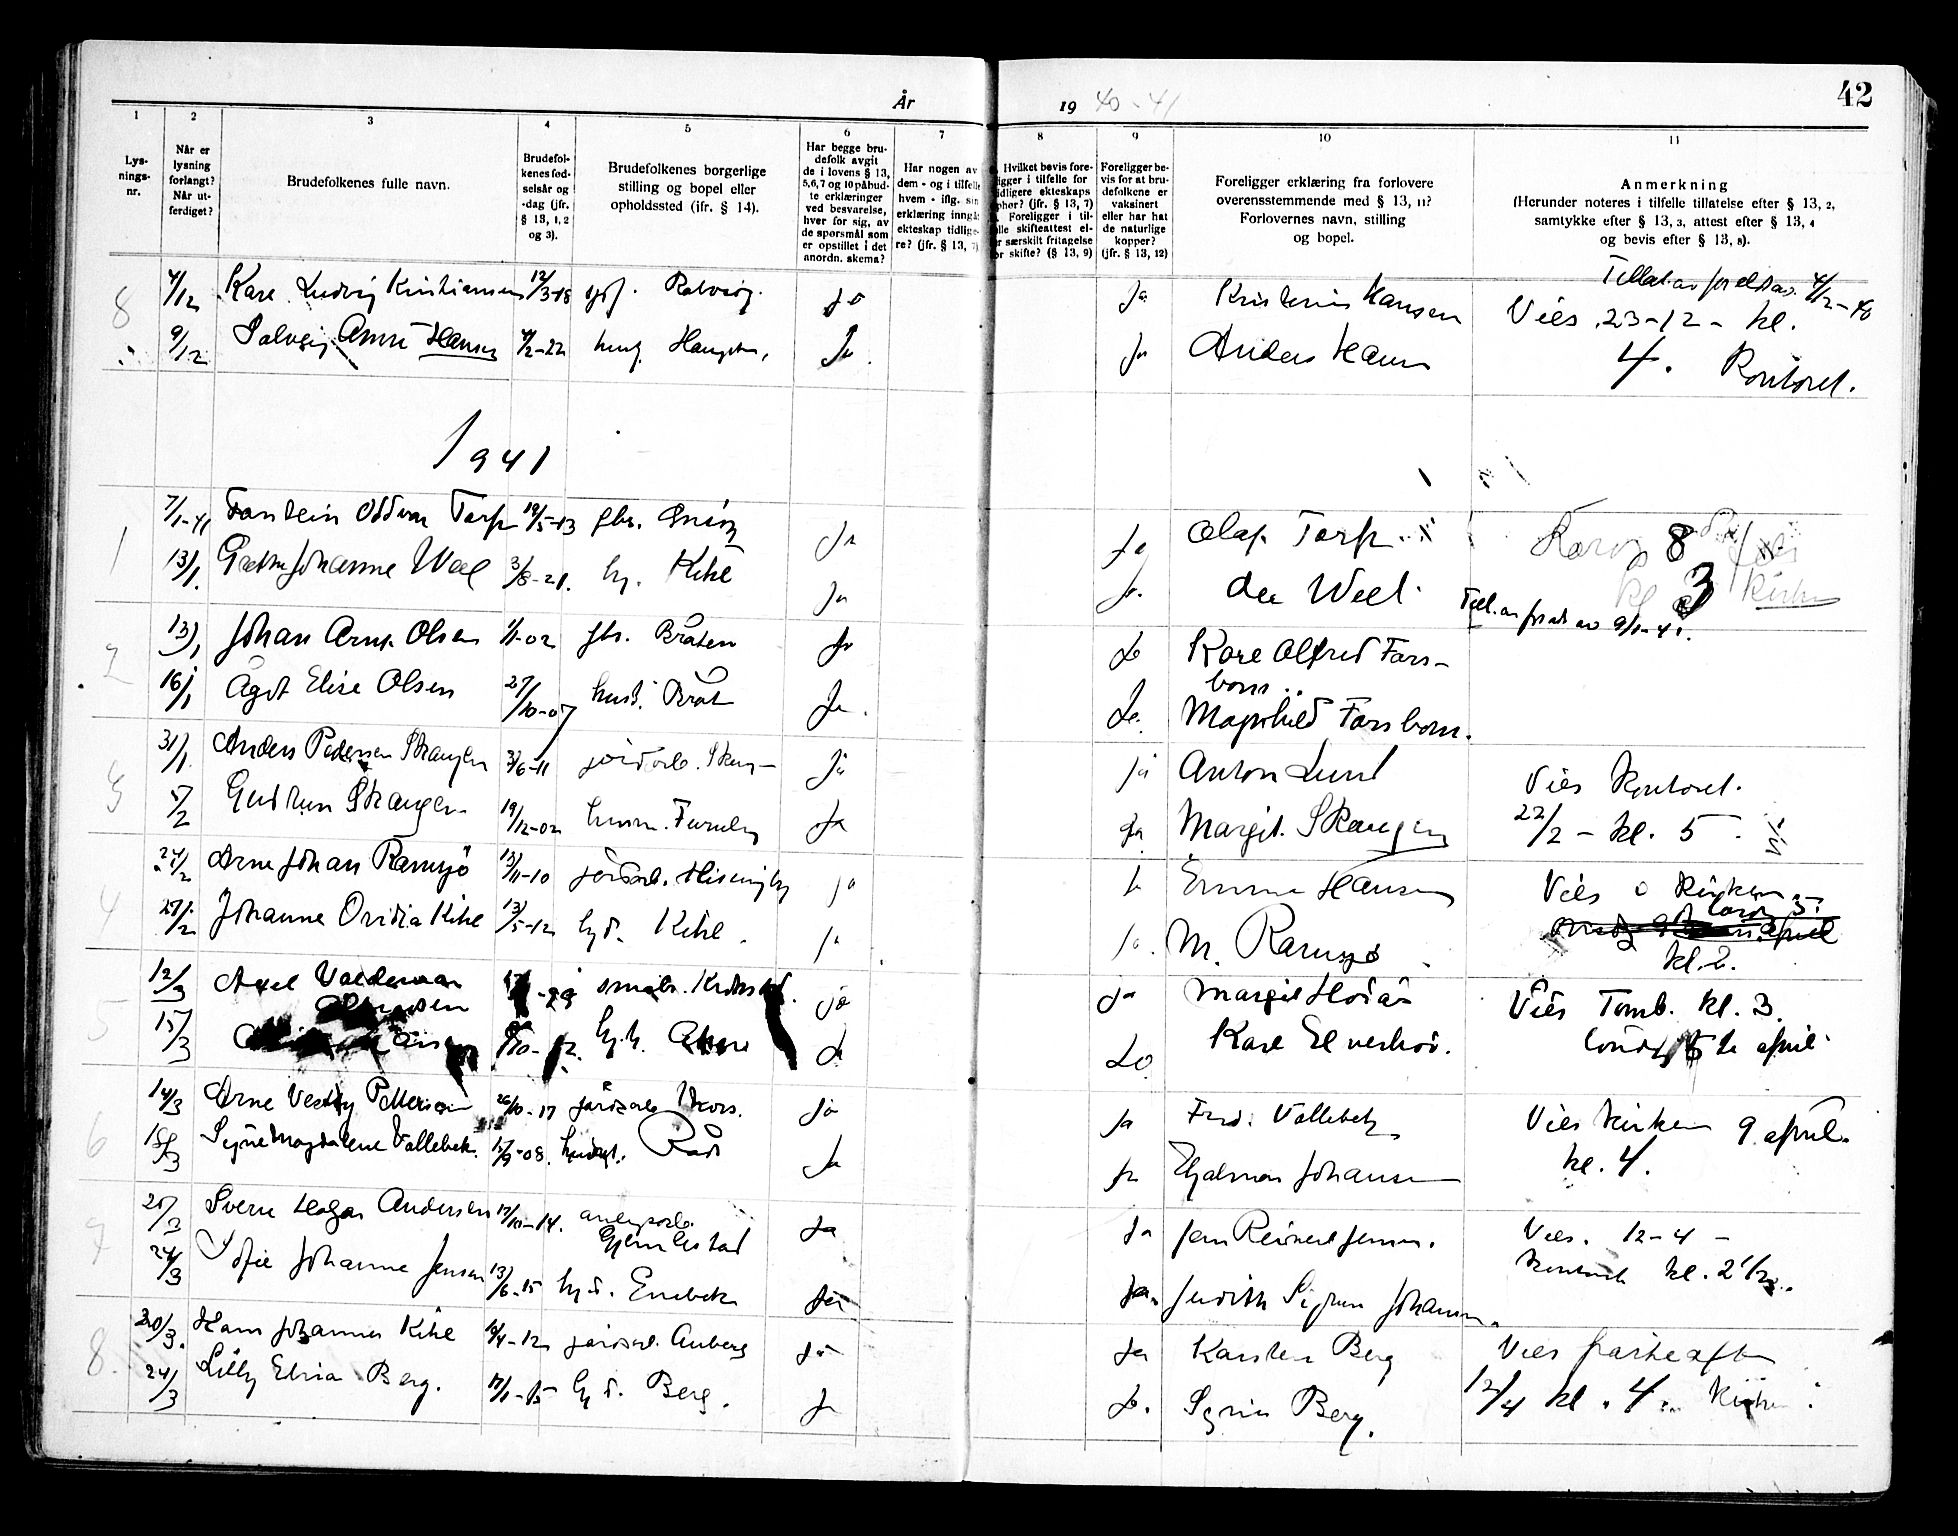 42
År 19 40-41
1 2 3 4 5 6 7 8 9 10 11
Lys-
nings-
nr.
Når er
lysning
forlangt?
Når ut-
ferdiget?
Brudefolkenes fulle navn.
Brudefol-
kenes fød-
selsår og
-dag (jfr.
§ 13, 1, 2
og 3).
Brudefolkenes borgerlige
stilling og bopel eller
opholdssted (ifr. § 14).
Har begge bru-
defolk avgit
de i lovens § 13,
5,6,7 og 10 påbud-
te erklæringer
ved besvarelse,
hver for sig, av
de spørsmål som
er opstillet i det
anordn. skema?
Har nogen av
dem - og i tilfelle
hvem - iflg. sin
erklæring inngå
ekteskap tidlige-
re? (jfr. § 13, 7)
Hvilket bevis fore-
ligger i tilfelle for
tidligere ekteskaps
ophør? (jfr. § 13, 7)
Foreligger i til-
felle skifteattest el-
ler særskilt fritagelse
for skifte? (§ 13, 9)
Foreligger be-
vis for at bru-
defolkene er
vaksinert
eller har hat
de naturlige
kopper?
(jfr. § 13, 12)
Foreligger erklæring fra forlovere
overensstemmende med § 13, 11?
Forlovernes navn, stilling
og bopel.
Anmerkning
(Herunder noteres i tilfelle tillatelse efter § 13, 2,
samtykke efter § 13, 3, attest efter § 13, 4
og bevis efter § 13, 8).
8 4/12 Kåre Ludvig Kristiansen 12/3-18 ja Kristian Hansen 4/12-40
Vies 23-12- kl.
9/12 Solveig Anne Hansen 4/2-22 Ja Anders Hansen
4. Kontoret.
1941
1 7/1-41 Torstein Oddvar Torp 19/5-13 gbr. Ja ja Olaf Torp 8
13/1 Grethe Johanne Weel 3/8-21 Kihl Ja ja Weel kl 3 Kirken
9/1-41
2 13/1 Johan Arne Olsen 1/1-02 Bråten Ja Ja Kåre Alfred Fors-
born
16/1 Ågot Elise Olsen 27/10-07 Bråt Ja Ja Magnhild Forsborn.
3 31/1 Anders Pedersen Skaugen 3/6-11 jordarb. ja ja Anton Lund Vies kontoret.
5/2 Gudrun Skaugen 19/12-02 Ja Ja Margit Skaugen 22/2 - kl. 5
4 27/2 Arne Johan Ramsjø 13/11-10 jordarb. ja ja Emma Hansen Vies i kirken
27/2 Johanne Ovidia Kihl 13/5-12 Kihl ja ja M. Ramsjø
kl. 2.
5 12/3 Axel Valdemar småbr. ja ja Margit Vies Tomb. kl. 3.
15/3 Ja Ja Kåre Elverhøi. 5 te april
6 14/3 Arne Pettersen 26/10-17 jordarb. ja ja Fred. Vallebek Vies kirken 9. april
15/3 Signe Magdalene Vallebek. 15/9-08. Råde Ja ja Hjalmar Johansen kl. 4.
7 20/3 Sverre Andersen 17/10-14. Ja Ja Jens Reinert Jensen. Vies. 12-4 -
24/3 Sofie Johanne Jensen 13/6-15 Enebek Ja Ja Judith Sigrun Johansen. kl. 2 1/2.
8. 20/3. Hans Johannes Kihl 10/4-12 jordarb. ja Ja Karsten Berg Vies påskeaften
24/3 Lilly Berg. 17/1-15 Berg. ja Ja. Berg. 12/4 kl. 4. Kirken.